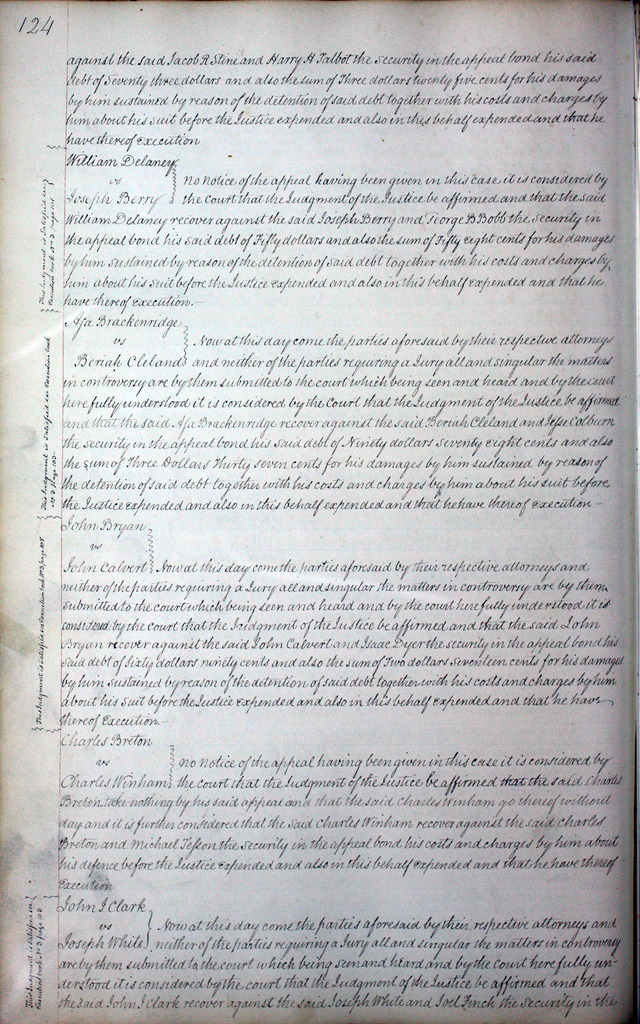 124
against the said Jacob R Stine and Harry H Talbot the security in the appeal bond his said
debt of Seventy three dollars and also the sum of Three dollars twenty five cents for his damages
by him sustained by reason of the detention of said debt together with his costs and charges by
him about his suit before the Justice expended and also in this behalf expended and that he
have thereof execution
William Delaney
vs
no notice of the appeal having been given in this case it is considered by
Joseph Berry the Court that the Judgment of the Justice be affirmed and that the said
William Delaney recover against the said Joseph Berry and George B Bobb the security in
the appeal bond his said debt of Fifty dollars and also the sum of Fifty eight cents for his damages
by him sustained by reason of the detention of said debt together with his costs and charges by
him about his suit before the Justice expended and also in this behalf expended and that he
have thereof execution.
Asa Brackenridge
vs Now at this day come the parties aforesaid by their respective attorneys
Beriah Cleland and neither of the parties requiring a Jury all and singular the matters
in controversy are by them submitted to the court which being seen and heard and by the court
here fully understood it is considered by the Court that the Judgment of the Justice be affirmed
and that the said Asa Brackenridge recover against the said Beriah Cleland and Jesse Colburn
the security in the appeal bond his said debt of Ninety dollars Seventy eight cents and also
the sum of Three Dollars Thirty seven cents for his damages by him sustained by reason of
the detention of said debt together with his costs and charges by him about his suit before
the Justice expended and also in this behalf expended and that he have thereof execution
John Bryan
vs
John Calvert Now at this day come the parties aforesaid by their respective attorneys and
neither of the parties requiring a Jury all and singular the matters in controversy are by them
submitted to the court which being seen and heard and by the court here fully understood it is
considered by the court that the Judgment of the Justice be affirmed and that the said John
Bryan recover against the said John Calvert and Isaac Dyer the security in the appeal bond his
said debt of sixty dollars ninety cents and also the sum of Two dollars Seventeen cents for his damages
by him sustained by reason of the detention of the said debt together with his costs and charges by him
about his Suit before the Justice expended and also in this behalf expended and that he have
thereof Execution.
Charles Breton
vs no notice of the appeal having been given in this case it is considered by
Charles Winham the court that the Judgment of the Justice be affirmed that the said Charles
Breton take nothing by his said appeal and that the said Charles Winham go thereof without
day and it is further considered that the said Charles Winham recover against the said Charles
Breton and Michael the security in the appeal bond his costs and charges by him about
his defence before the Justice expended and also in this behalf expended and that he have thereof
execution
John J Clark
vs Now at this day come the parties aforesaid by their respective attorneys and
Joseph White neither of the parties requiring a Jury all and singular the matters in controversy
are by them submitted to the court which being seen and heard and by the court here fully un-
derstood it is considered by the court that the Judgment of the Justice be affirmed and that
the said John J Clark recover against the said Joseph White and Joel Finch the security in the
This Judgment is Satisfied
This Judgment is Satisfied in Execution book
This Judgment is satisfied in Execution book
This Judgment is satisfied in